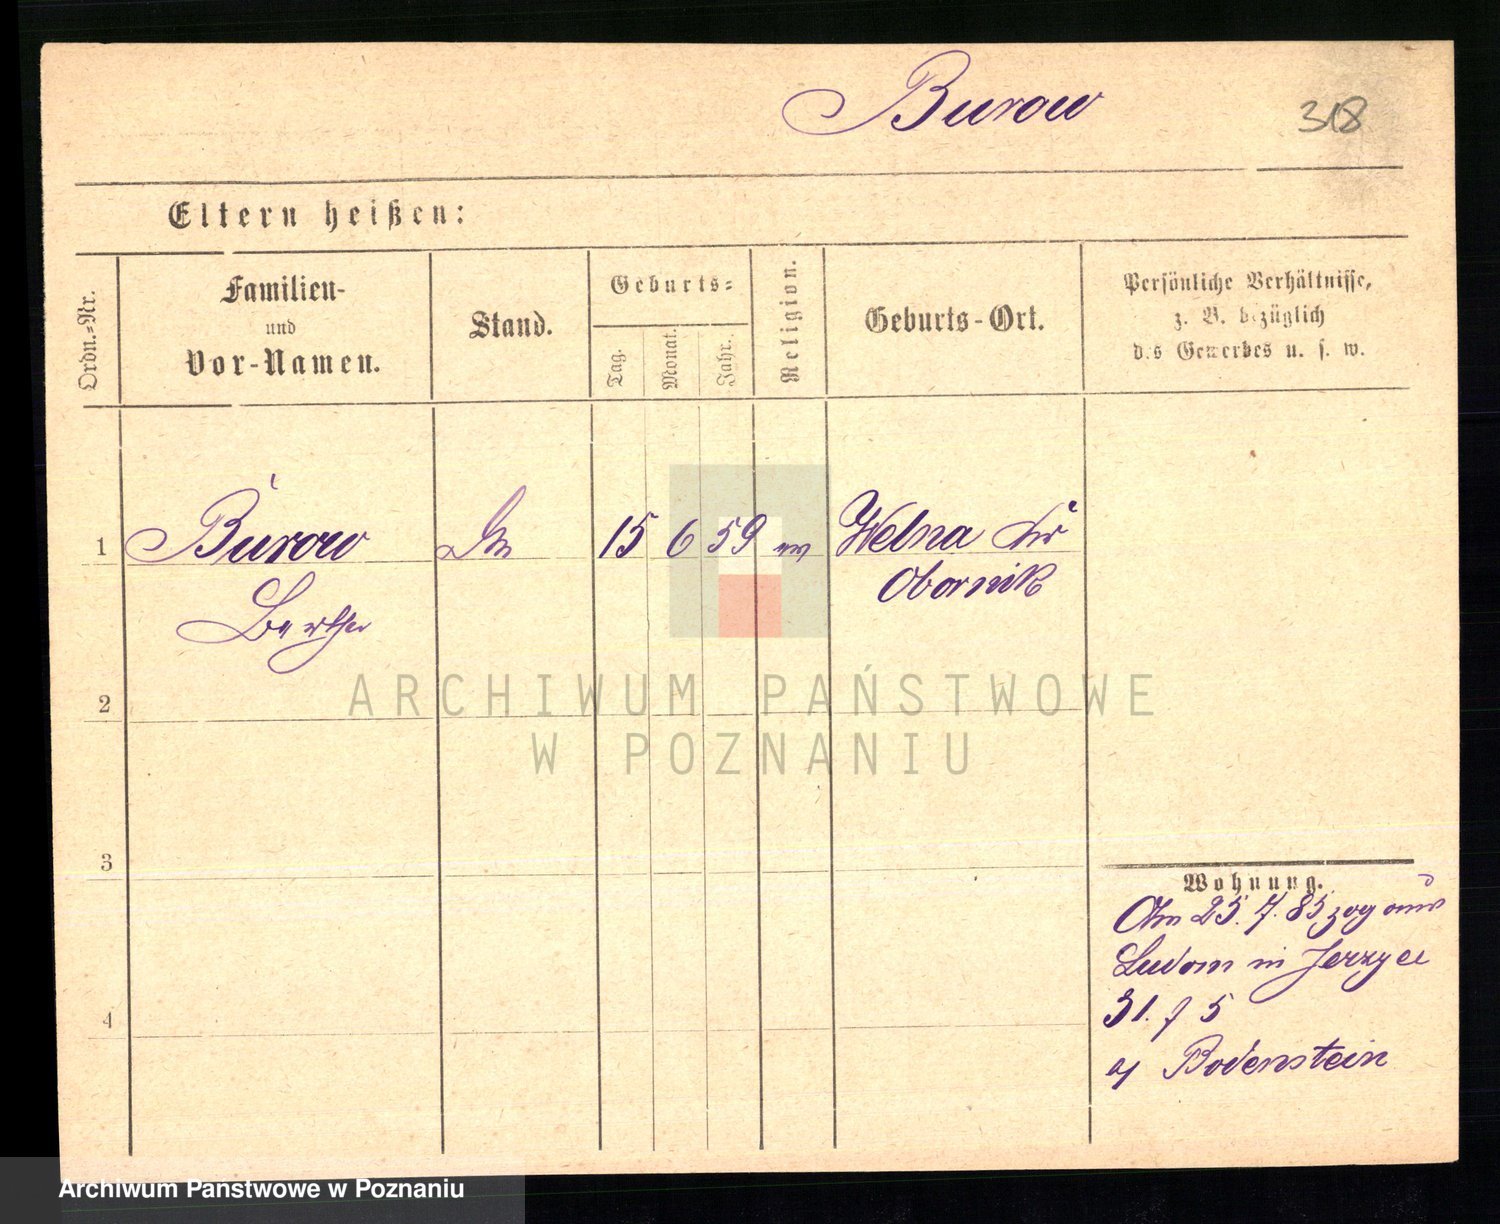 Burow
318
Eltern heißen:
Ordn.-Nr.
Familien-
und
Vor-Namen.
Stand.
Geburts-
Tag.
Monat.
Jahr.
Religion.
Geburts-Ort.
Persönliche Verhältnisse,
z. B. bezüglich
des Gewerbes u. s. w.
1
Burow
15 6 59 ev
Welna Kr
Obornik
Bertha
2
ARCHIWUM PAŃSTWOWE
W POZNANIU
3
Wohnung.
Am 25. 7. 85 zog aus
Ludom in Jerzyce
31. 5
Bodenstein
4
Archiwum Państwowe w Poznaniu